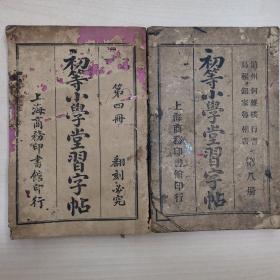 第四册
翻刻必究
初等小學堂習字帖
上海商務印書館印行
第八册
初等小學堂習字帖
上海商務印書館印行